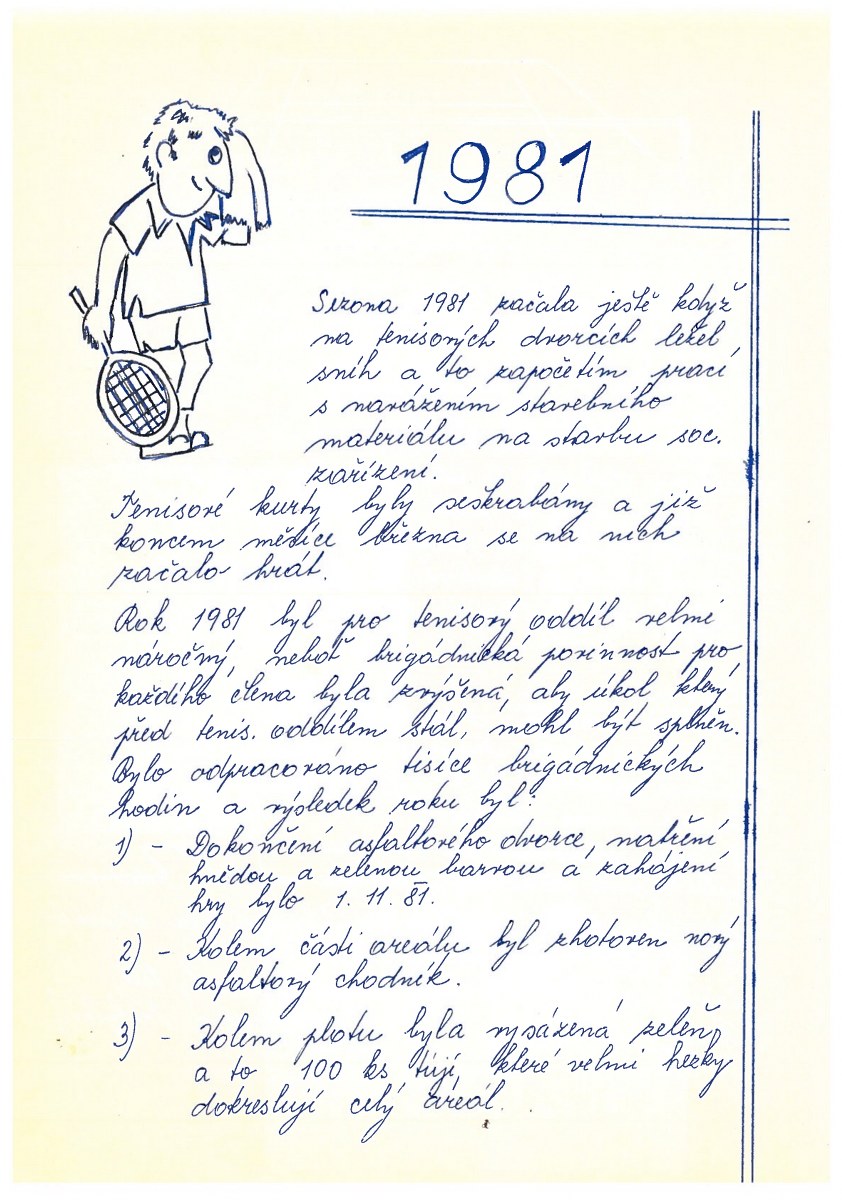 1981
Sezona 1981 začala ještě když
na tenisových dvorcích ležel
sníh a to započetím prací
s navážením stavebního
materiálu na stavbu soc.
zařízení.
Tenisové kurty byly seškrabány a již
koncem měsíce března se na nich
začalo hrát.
Rok 1981 byl pro tenisový oddíl velmi
náročný, neboť brigádnická povinnost pro
každího člena byla zvýšená, aby úkol který
před tenis. oddílem stál, mohl být splněn.
Bylo odpracováno tisíce brigádnických
hodin a výsledek roku byl:
1) - Dokončení asfaltového dvorce, natření
hnědou a zelenou barvou a zahájení
hry bylo 1. 11. 81.
2) - Kolem části areálu byl zhotoven nový
asfaltový chodník.
3) - Kolem plotu byla vysázená zeleň,
a to 100 ks tújí, které velmi hezky
dokreslují celý areál.